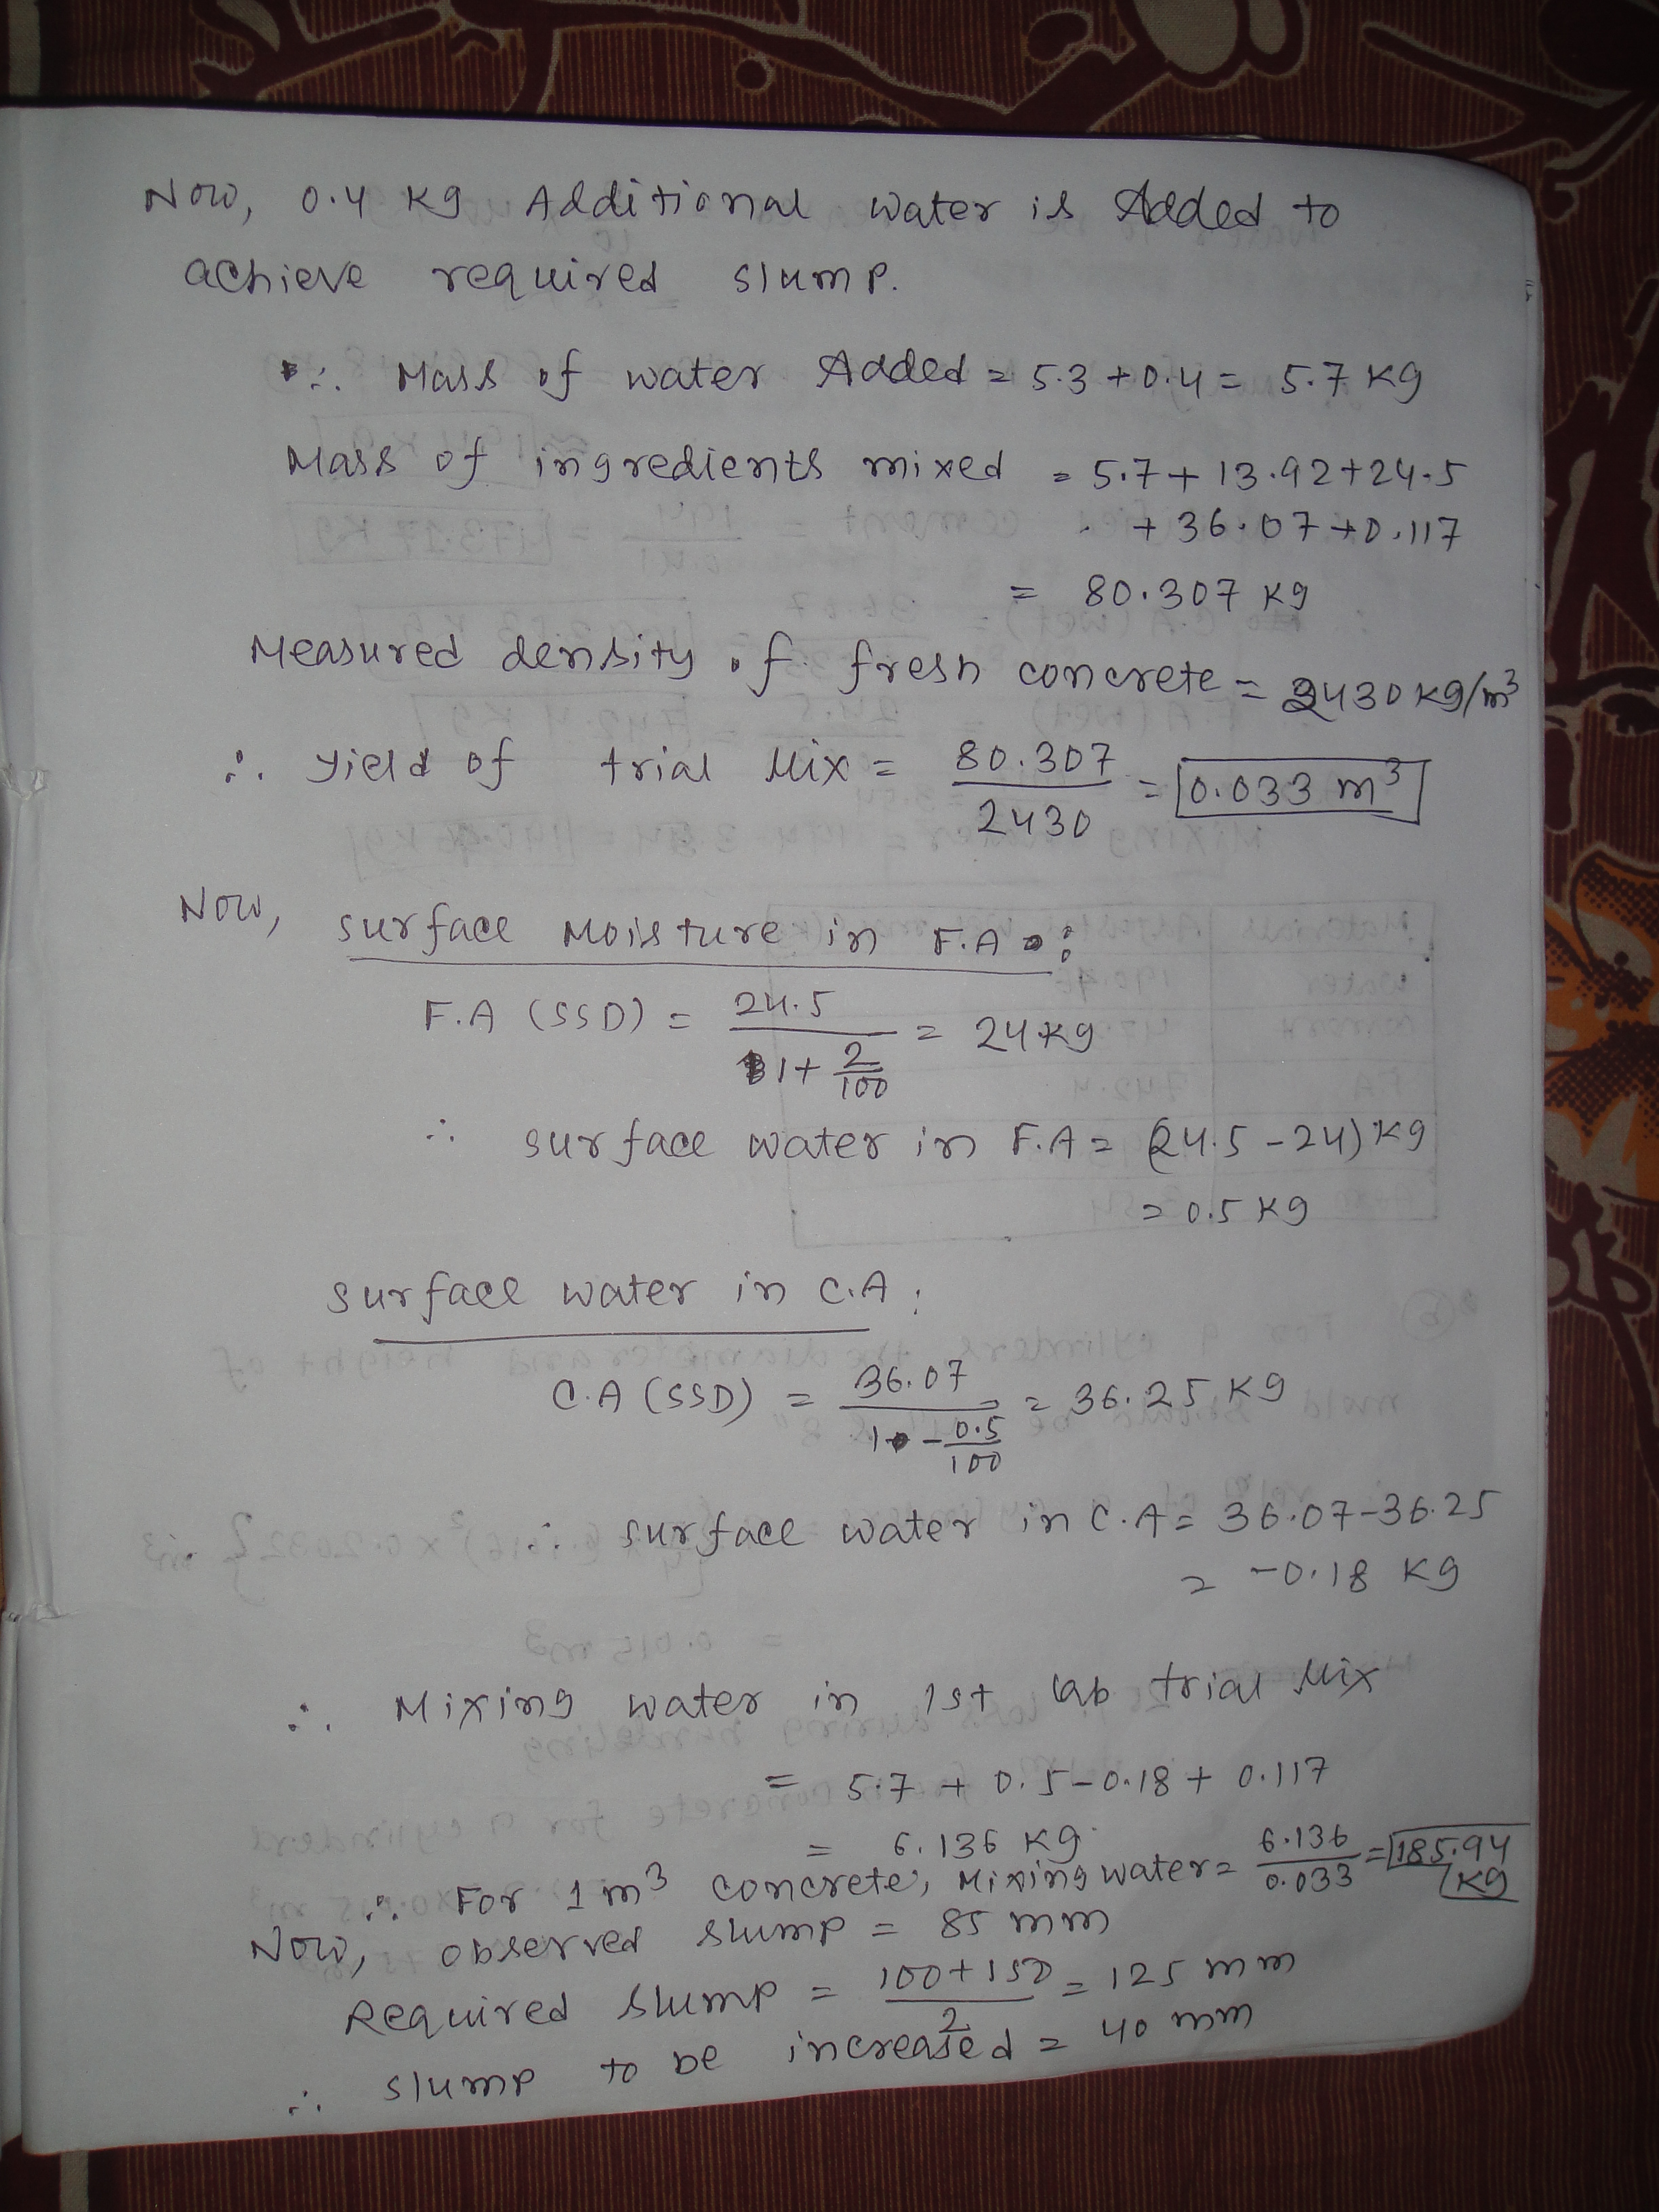 Now, 0.4 kg Additional water is Added to
achieve required slump.
∴ Mass of water Added = 5.3 + 0.4 = 5.7 kg
Mass of ingredients mixed = 5.7 + 13.92 + 24.5
+ 36.07 + 0.117
= 80.307 kg
Measured density of fresh concrete = 2430 kg/m³
∴ Yield of trial Mix = 80.307/2430 = 0.033 m³
Now, surface Moisture in F.A :
F.A (SSD) = 24.5/(1 + 2/100) = 24 kg
∴ surface water in F.A = (24.5 - 24) kg
= 0.5 kg
surface water in C.A :
C.A (SSD) = 36.07/(1 - 0.5/100) = 36.25 kg
∴ surface water in C.A = 36.07 - 36.25
= -0.18 kg
∴ Mixing water in 1st lab trial Mix
= 5.7 + 0.5 - 0.18 + 0.117
= 6.136 kg
∴ For 1 m³ concrete, Mixing water = 6.136/0.033 = 185.94 kg
Now, observed slump = 85 mm
Required slump = (100 + 150)/2 = 125 mm
∴ slump to be increased = 40 mm